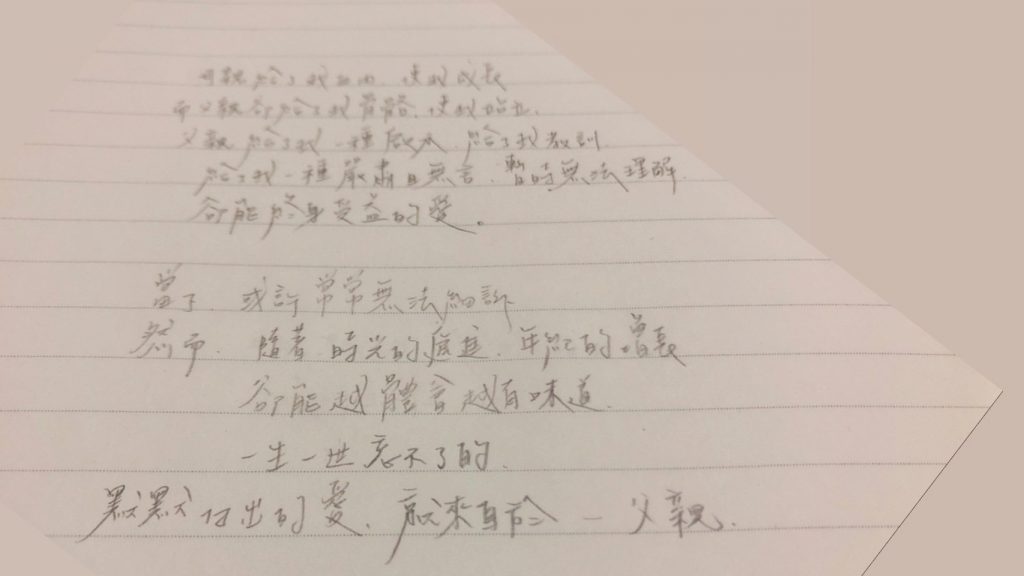 母親給了我血肉,使我成長
而父親卻給了我骨骼,使我站立.
父親 給了我一種 給了我教訓
給了我一種嚴肅且無言、暫時無法理解.
卻能終身受益的愛。
當了 或許常常無法細訴
然而. 隨著 時光的 年紀的增長
卻能越體會越有味道.
一生一世忘不了的.
默默付出的愛. 就來自於 — 父親.